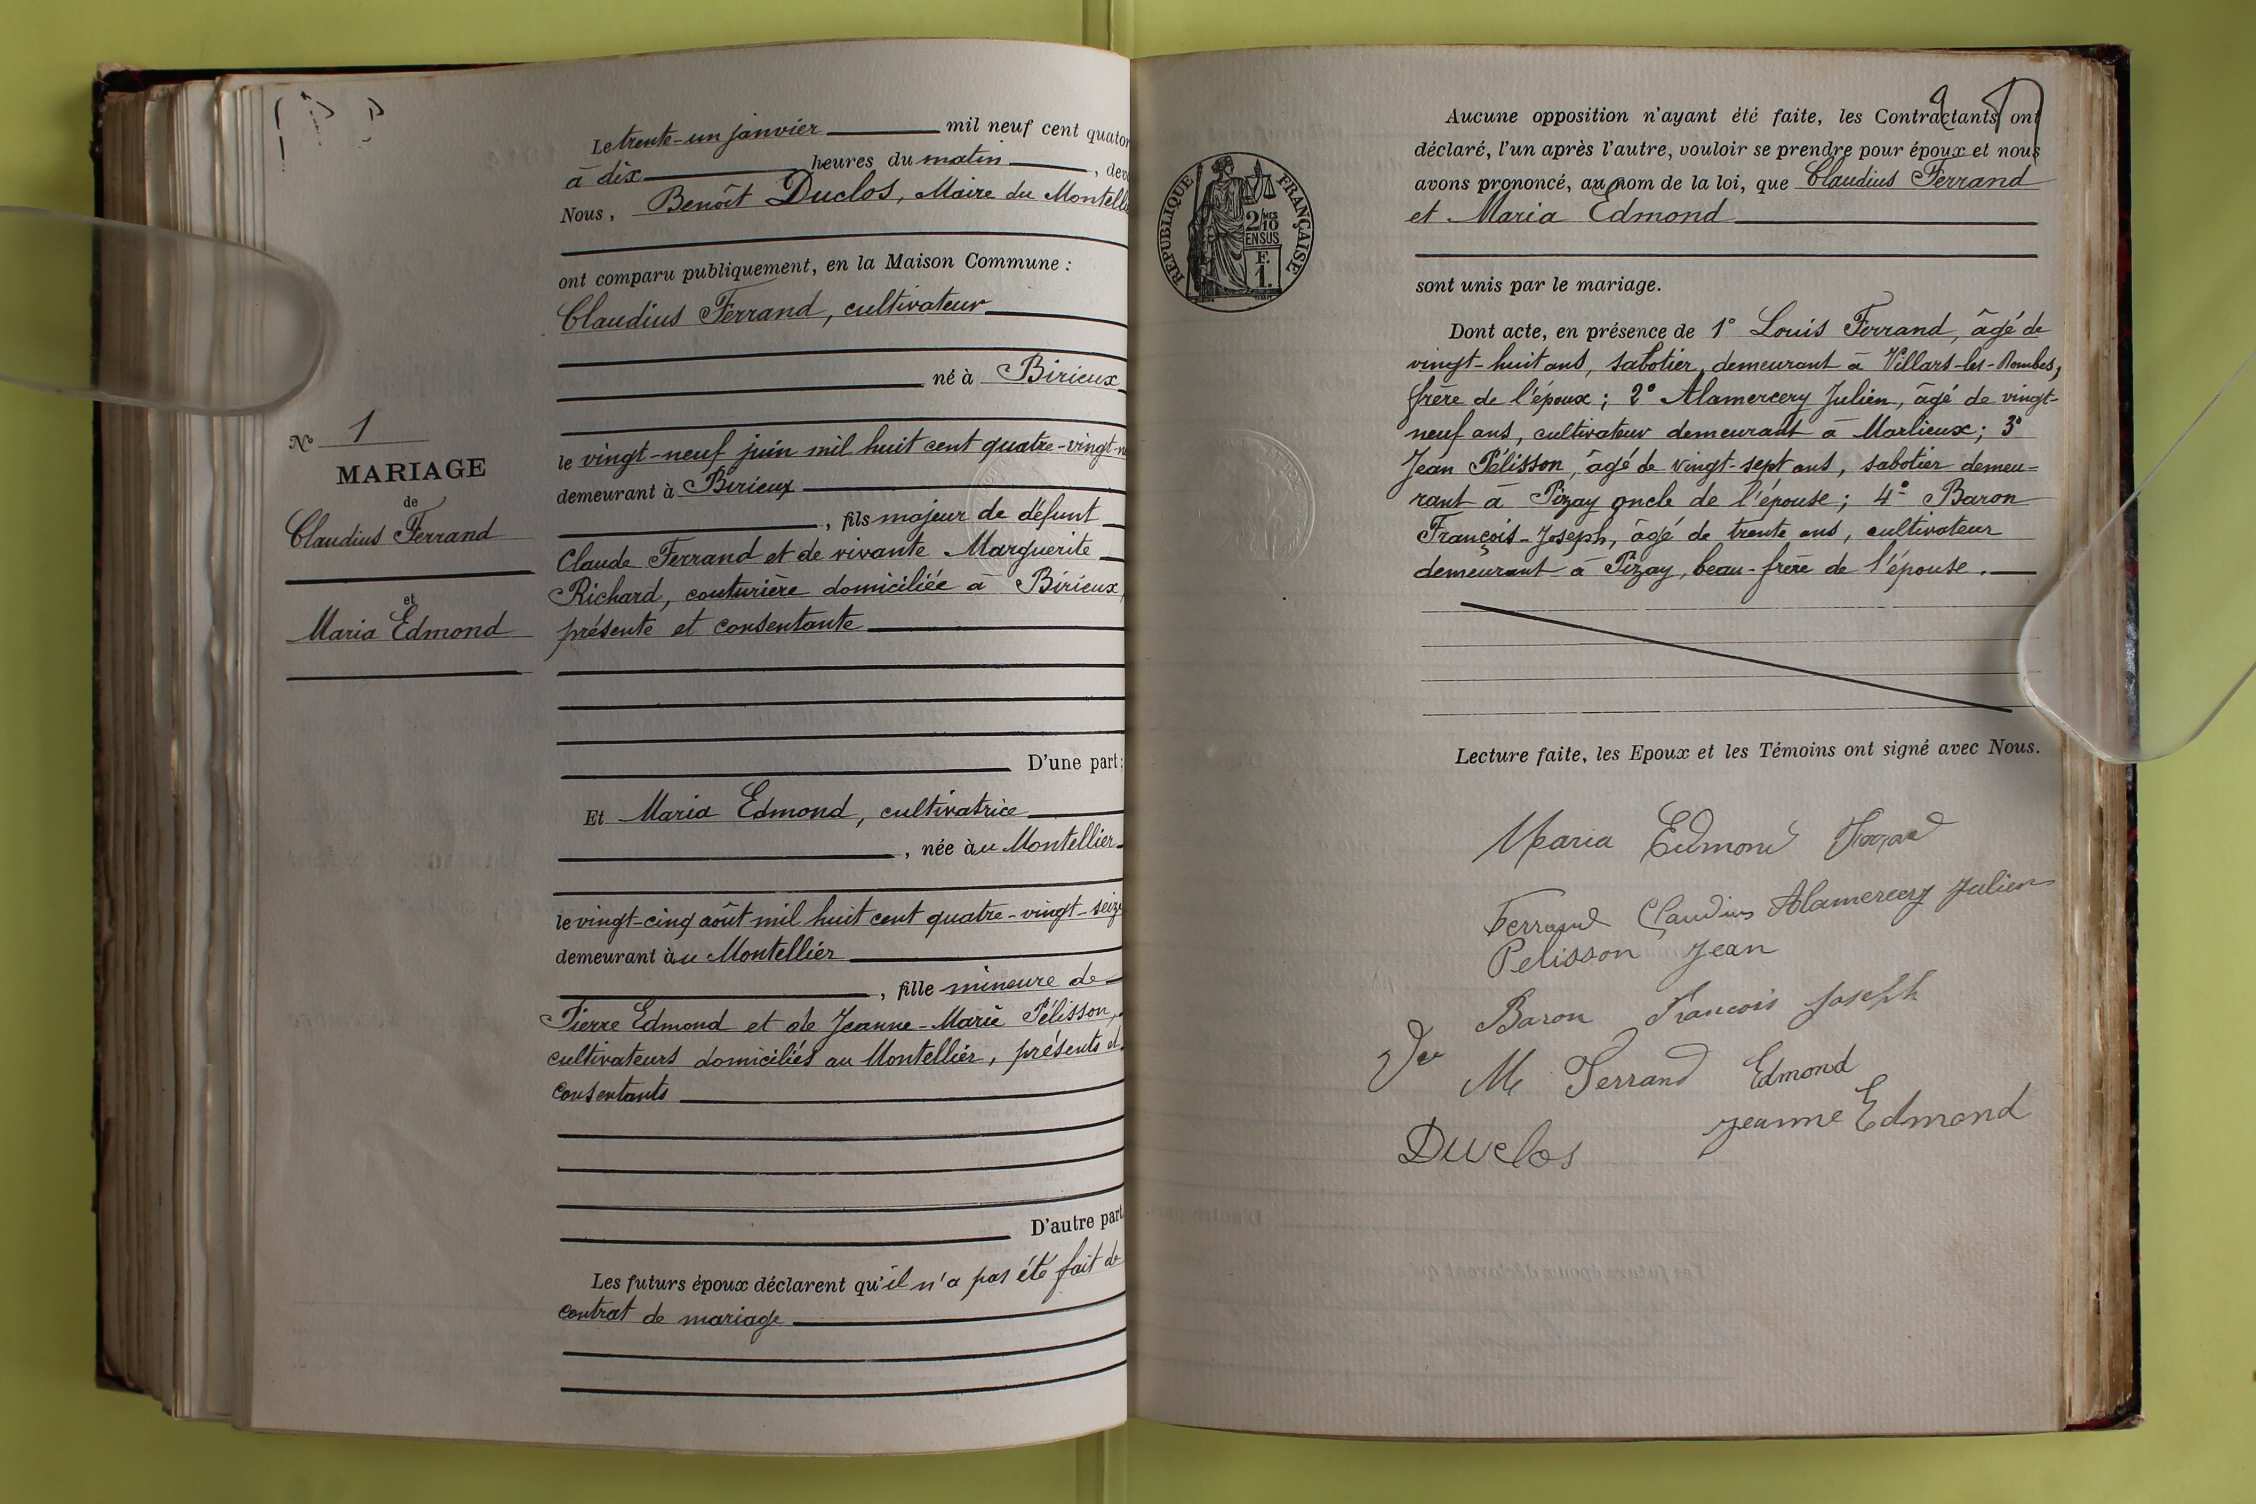 Le trente-un janvier mil neuf cent quator
à dix heures du matin, dev
Nous, Benoît Duclos, Maire du Montelli
ont comparu publiquement, en la Maison Commune :
Claudius Ferrand, cultivateur
né à Birieux
le vingt-neuf juin mil huit cent quatre-vingt-n
demeurant à Birieux
, fils majeur de défunt
Claude Ferrand et de vivante Marguerite
Richard, couturière domiciliée à Birieux,
présente et consentante
D'une part ;
Et Maria Edmond, cultivatrice
, née àu Montellier
le vingt-cinq août mil huit cent quatre-vingt-seize
demeurant àu Montellier
, fille mineure de
Pierre Edmond et de Jeanne-Marie Pélisson,
cultivateurs domiciliés au Montellier, présents et
consentants
D'autre part
Les futurs époux déclarent qu'il n'a pas été fait de
contrat de mariage
N° 1
MARIAGE
de
Claudius Ferrand
et
Maria Edmond
RÉPUBLIQUE FRANÇAISE
2/10
EN SUS
F.
1.
Aucune opposition n'ayant été faite, les Contractants ont
déclaré, l'un après l'autre, vouloir se prendre pour époux et nous
avons prononcé, au nom de la loi, que Claudius Ferrand
et Maria Edmond
sont unis par le mariage.
Dont acte, en présence de 1° Louis Ferrand, âgé de
vingt-huit ans, sabotier, demeurant à Villars-les-Dombes,
frère de l'époux ; 2° Alamercery Julien, âgé de vingt-
neuf ans, cultivateur demeurant à Marlieux ; 3°
Jean Pélisson, âgé de vingt-sept ans, sabotier demeu=
rant à Pizay oncle de l'épouse ; 4° Baron
François-Joseph, âgé de trente ans, cultivateur
demeurant à Pizay, beau-frère de l'épouse.
Lecture faite, les Epoux et les Témoins ont signé avec Nous.
Maria Edmond
Ferrand Claudius Alamercery Julien
Pelisson Jean
Baron Francois Joseph
Ve M Ferrand Edmond
Duclos Jeanne Edmond